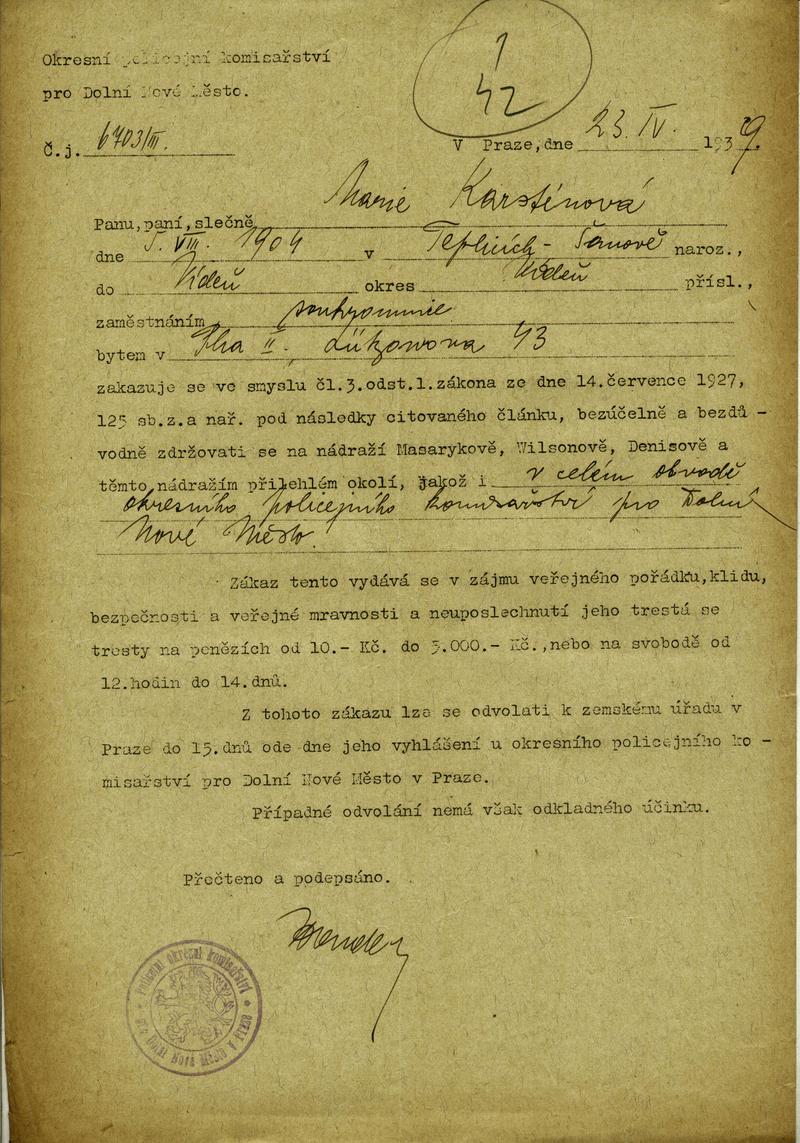 1
42
Okresní policejní komisařství
pro Dolní Nové Město.
Č.j. 6703/III.
V Praze, dne 23. IV. 1939.
Marie Karstínová
Panu, paní, slečně
dne 5. VIII. 1904 v Teplicích - Šanově naroz.,
do Vídeň okres Vídeň přísl.,
zaměstnáním soukromnie
bytem v Pha II., 43
zakazuje se ve smyslu čl.3.odst.1.zákona ze dne 14.července 1927,
125 sb.z.a nař. pod následky citovaného článku, bezúčelně a bezdů -
vodně zdržovati se na nádraží Masarykově, Wilsonově, Denisově a
těmto nádražím přilehlém okolí, jakož i v celém obvodě
okresního policejního komisařství pro Dolní
Nové Město.
Zákaz tento vydává se v zájmu veřejného pořádku,klidu,
bezpečnosti a veřejné mravnosti a neuposlechnutí jeho trestá se
tresty na penězích od 10.- Kč. do 5.000.- Kč.,nebo na svobodě od
12.hodin do 14.dnů.
Z tohoto zákazu lze se odvolati k zemskému úřadu v
Praze do 15.dnů ode dne jeho vyhlášení u okresního policejního ko -
misařství pro Dolní Nové Město v Praze.
Případné odvolání nemá však odkladného účinku.
Přečteno a podepsáno.
Policejní okresní komisařství
pro Dolní Nové Město v Praze